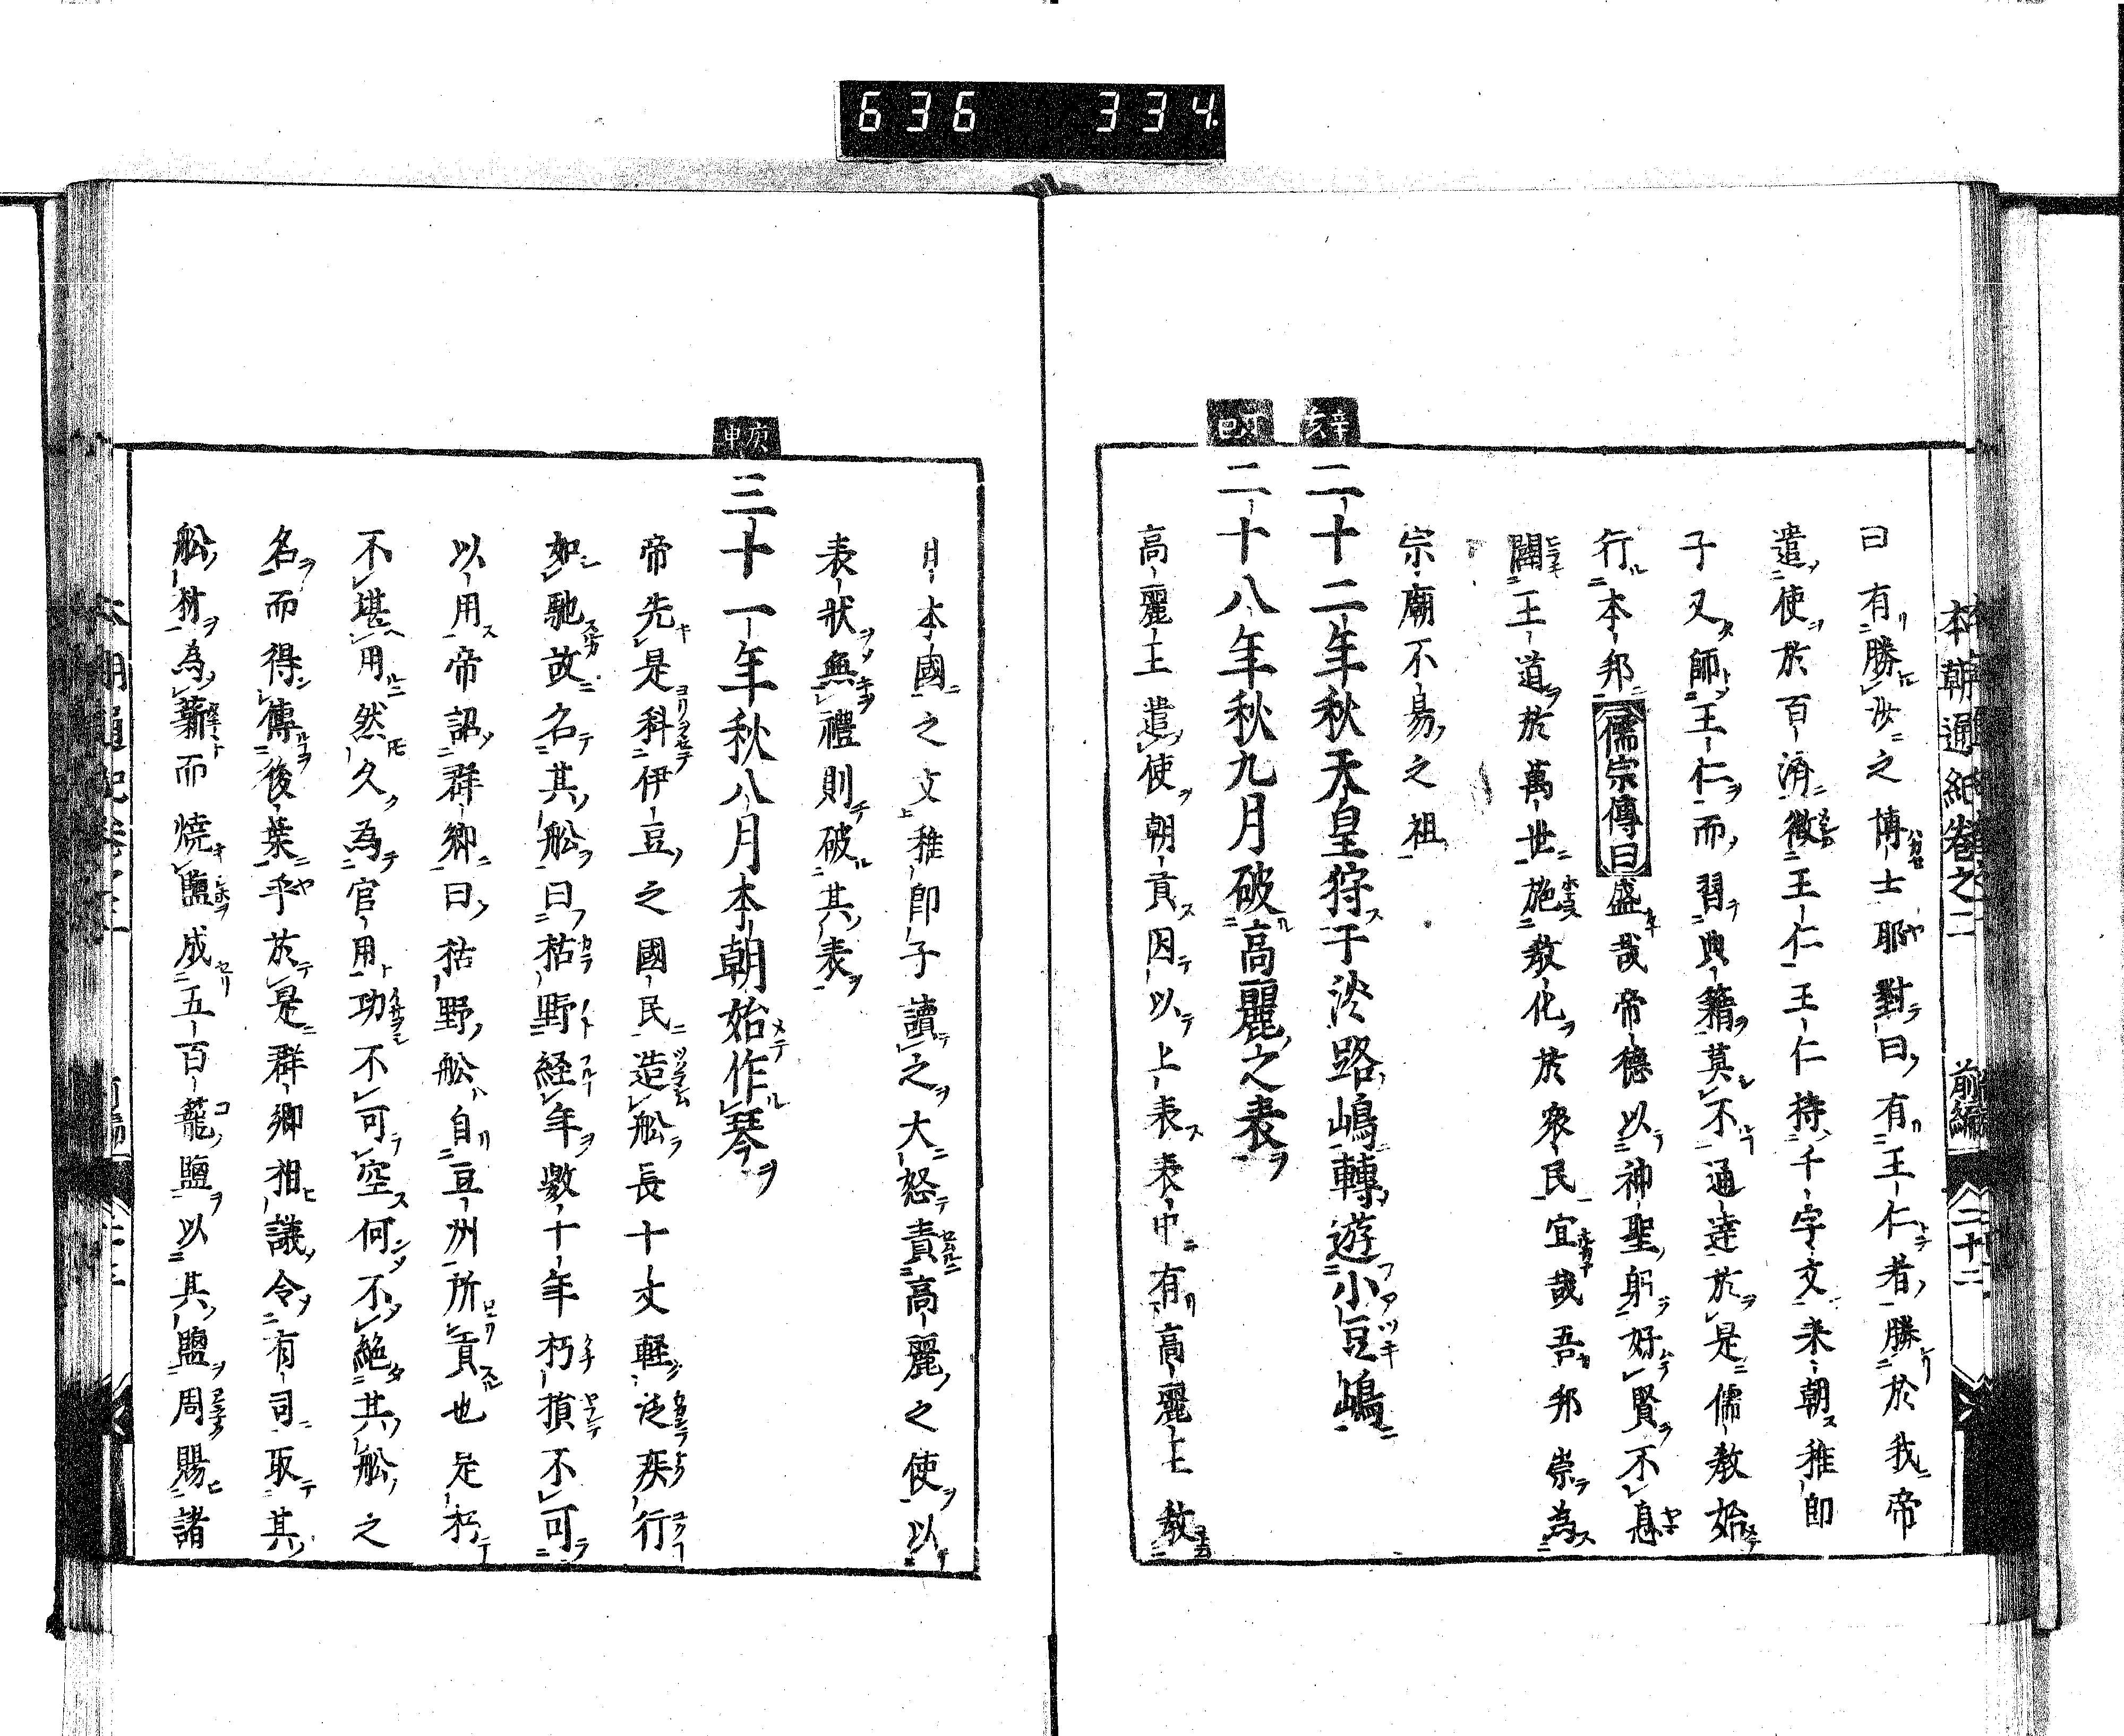 636 334
本朝通紀卷之二 前編 二十二
曰有勝汝之博士耶對曰有王仁者勝於我帝
遣使於百濟徵王仁王仁持千字文来朝稚郎
子又師王仁而習典籍莫不通達於是儒教始
行本邦儒宗傳曰盛哉帝德以神聖躬好賢不息
闢王道於萬世施教化於衆民宜哉吾邦崇為
宗廟不易之祖
辛亥
二十二年秋天皇狩于淡路嶋轉遊小豆嶋
丁巳
二十八年秋九月破高麗之表
高麗王遣使朝貢因以上表表中有高麗王教
日本國之文稚郎子讀之大怒責高麗之使以
表狀無禮則破其表
庚申
三十一年秋八月本朝始作琴
帝先是科伊豆之國民造舩長十丈軽泛疾行
如馳故名其舩曰枯野経年數十年朽損不可
以用帝詔群卿曰枯野舩自豆州所貢也是朽
不堪用然久為官用功不可空何不絶其舩之
名而得傳後葉乎於是群卿相議令有司取其
舩材為薪而焼鹽成五百籠鹽以其鹽周賜諸
本朝通紀卷之二 前編